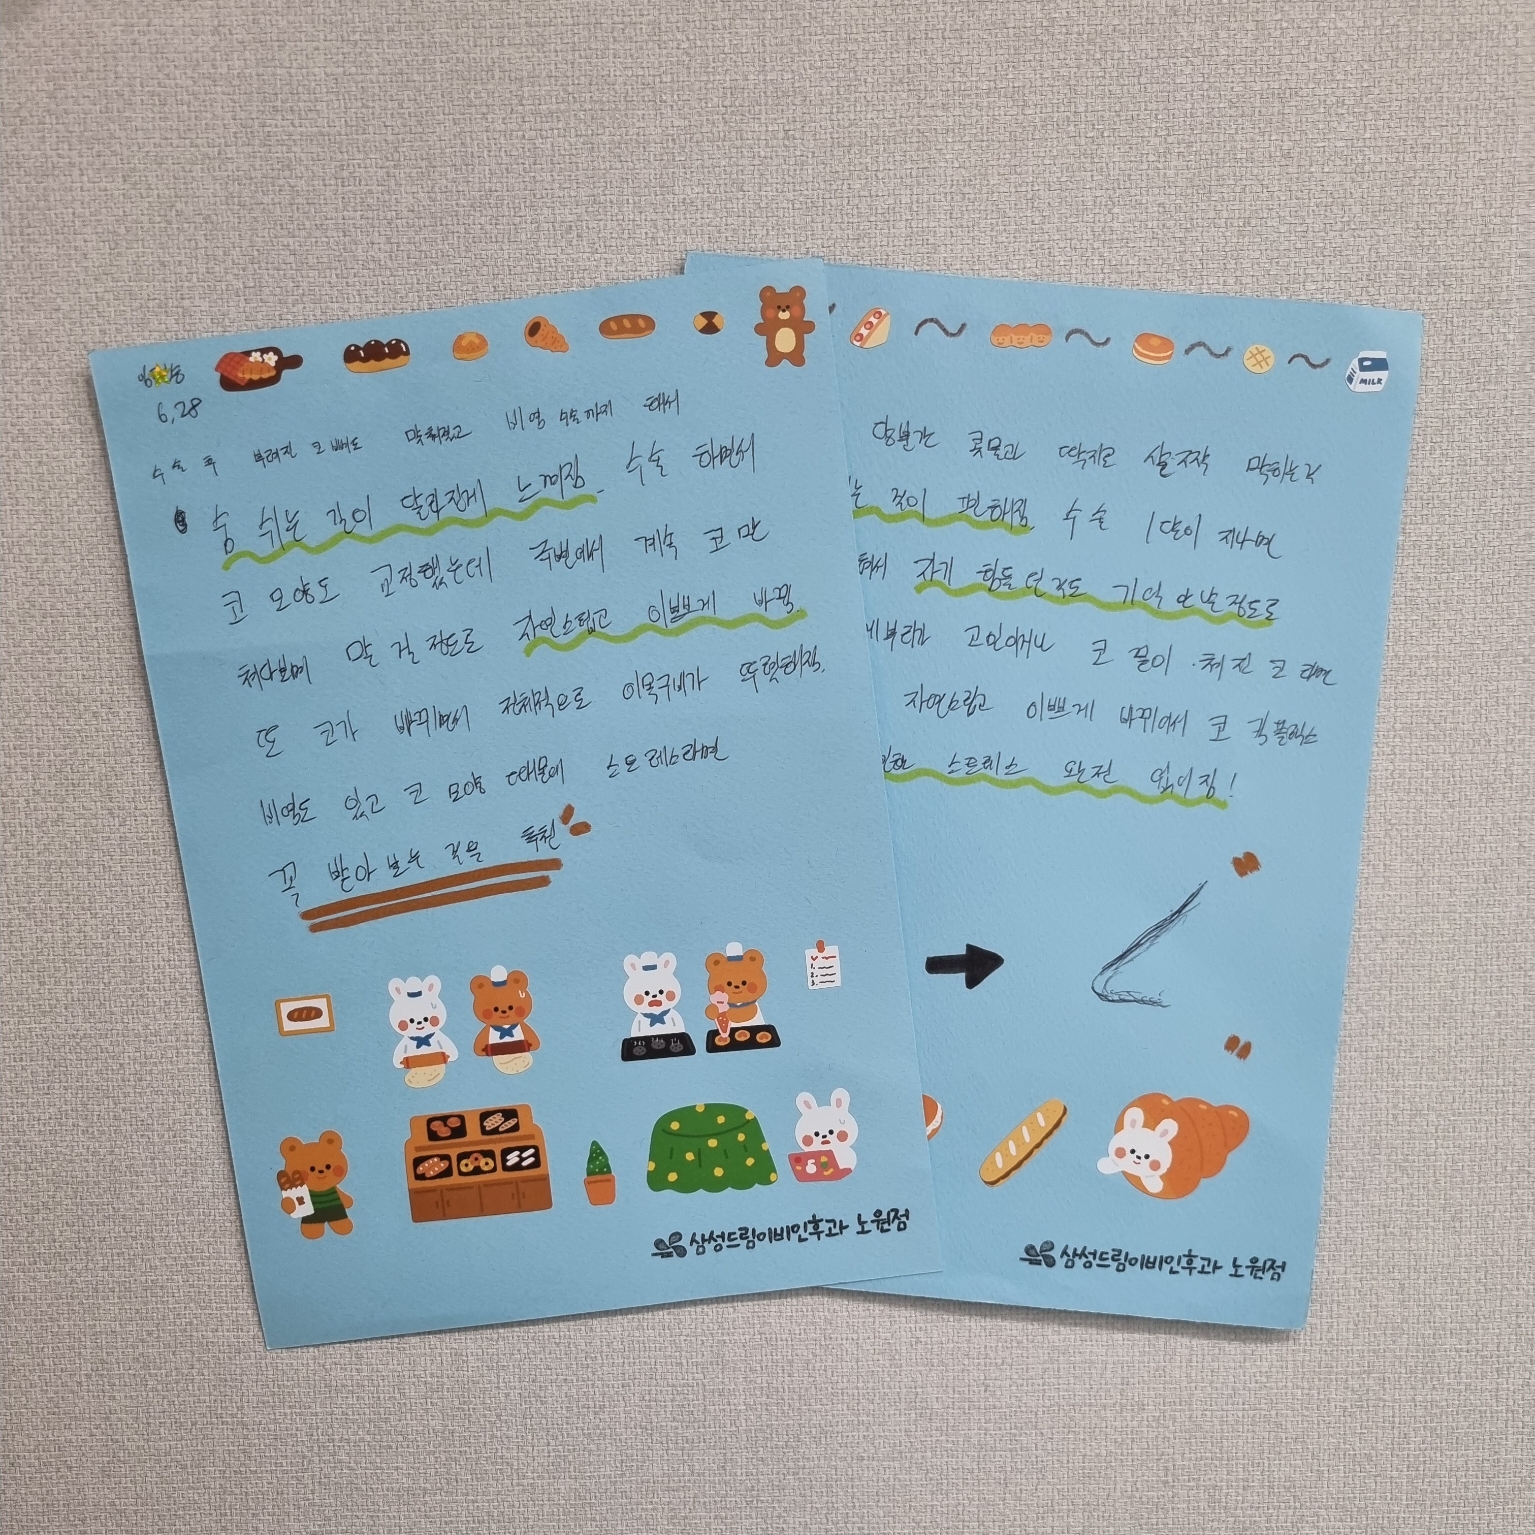 6.28
수술 후 부러진 코 뼈도 맞춰졌고 비염 수술까지 해서
숨 쉬는 길이 달라진게 느껴짐. 수술 하면서
코 모양도 교정했는데 주변에서 계속 코 만
쳐다보며 말 걸 정도로 자연스럽고 이쁘게 바뀜.
또 코가 바뀌면서 전체적으로 이목구비가 뚜렷해짐.
비염도 있고 코 모양 때문에 스트레스라면
꼭 받아 보는 것을 추천
삼성드림이비인후과 노원점
MILK
당분간 콧물과 딱지로 살짝 막히는거
는 것이 편해짐. 수술 1달이 지나면
해서 자기 힘들던 것도 기억 안 날 정도로
매부리가 고민이거나 코 끝이 쳐진 코 라면
자연스럽고 이쁘게 바뀌어서 코 콤플렉스
스트레스 완전 없어짐!
삼성드림이비인후과 노원점